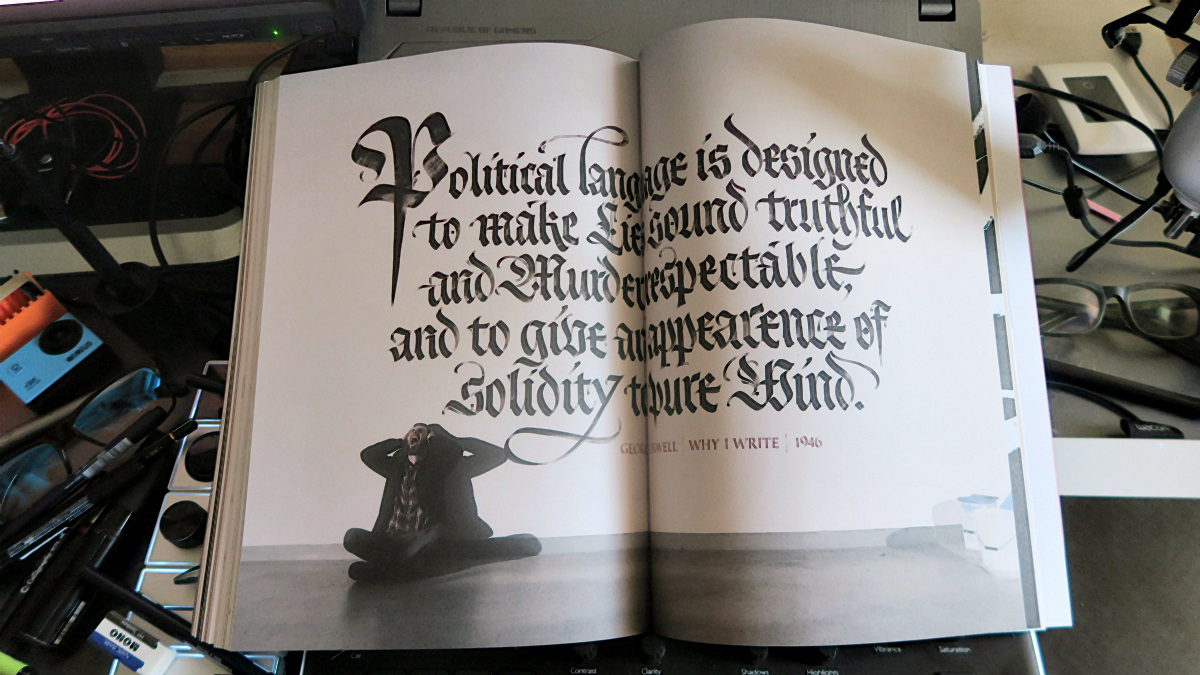 REPUBLIC OF GAMERS
Political language is designed
to make Lies sound truthful
and Murder respectable,
and to give an appearence of
Solidity to pure Wind.
GEORGE ORWELL | WHY I WRITE | 1946
wacom
MONO
Contrast Clarity Shadows Highlights Vibrance Saturation